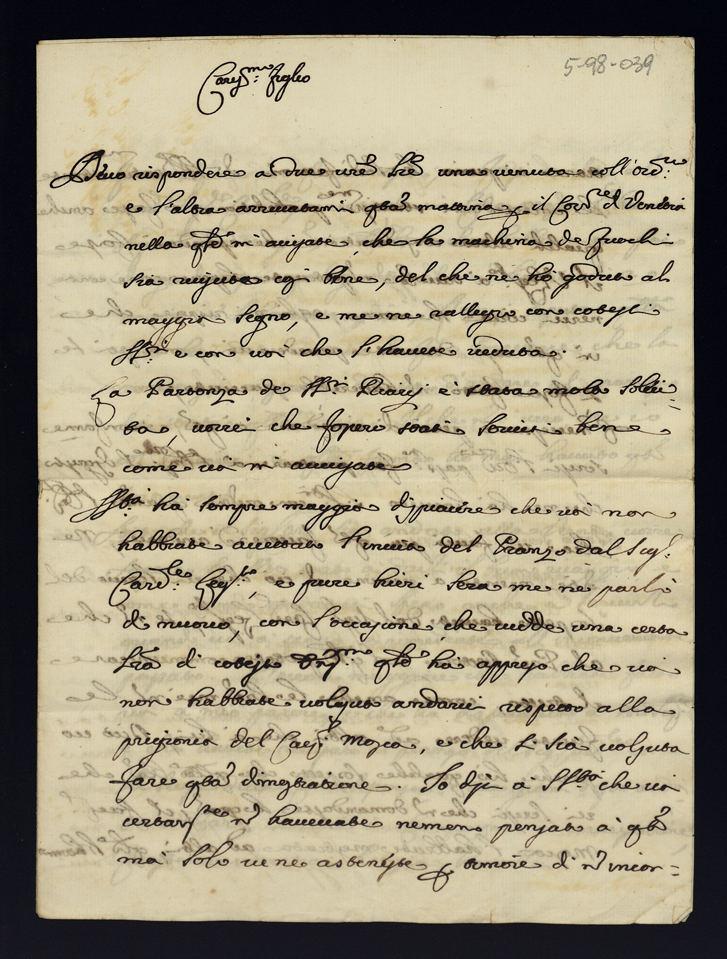 5-98-039
Cariss.mo figlio
Devo rispondere a due vre lre una venuta coll'ord.rio
e l'altra arrivatami qta mattina p il Corr.re di Venetia
nella qle m'avisate, che la machina de fuochi
sia riuscita cosi bene, del che ne hò goduto al
maggior segno, e me ne rallegro con cotesti
SS.ri e con voi che l'havete veduta.
La Partenza de SS.ri è stata molto solici=
ta, vorrei che fossero stati serviti bene
come voi m'avvisate
S.Stà hà sempre maggior dispiacere che voi non
habbiate accettato l'invito del Pranzo dal Sig.r
Card.le Leg.to, e pure hieri sera me ne parlò
di nuovo, con l'occasione, che vidde una certa
lra di cotesto qle hà appreso che voi
non habbiate voluto andarvi rispetto alla
prigionia del Mosca, e che si sia voluta
fare qta dimostratione. Io dissi à S.Stà che voi
certam.te nõ havevate nemeno pensato à qto
mà solo ve ne asteneste p timore di nõ incon=